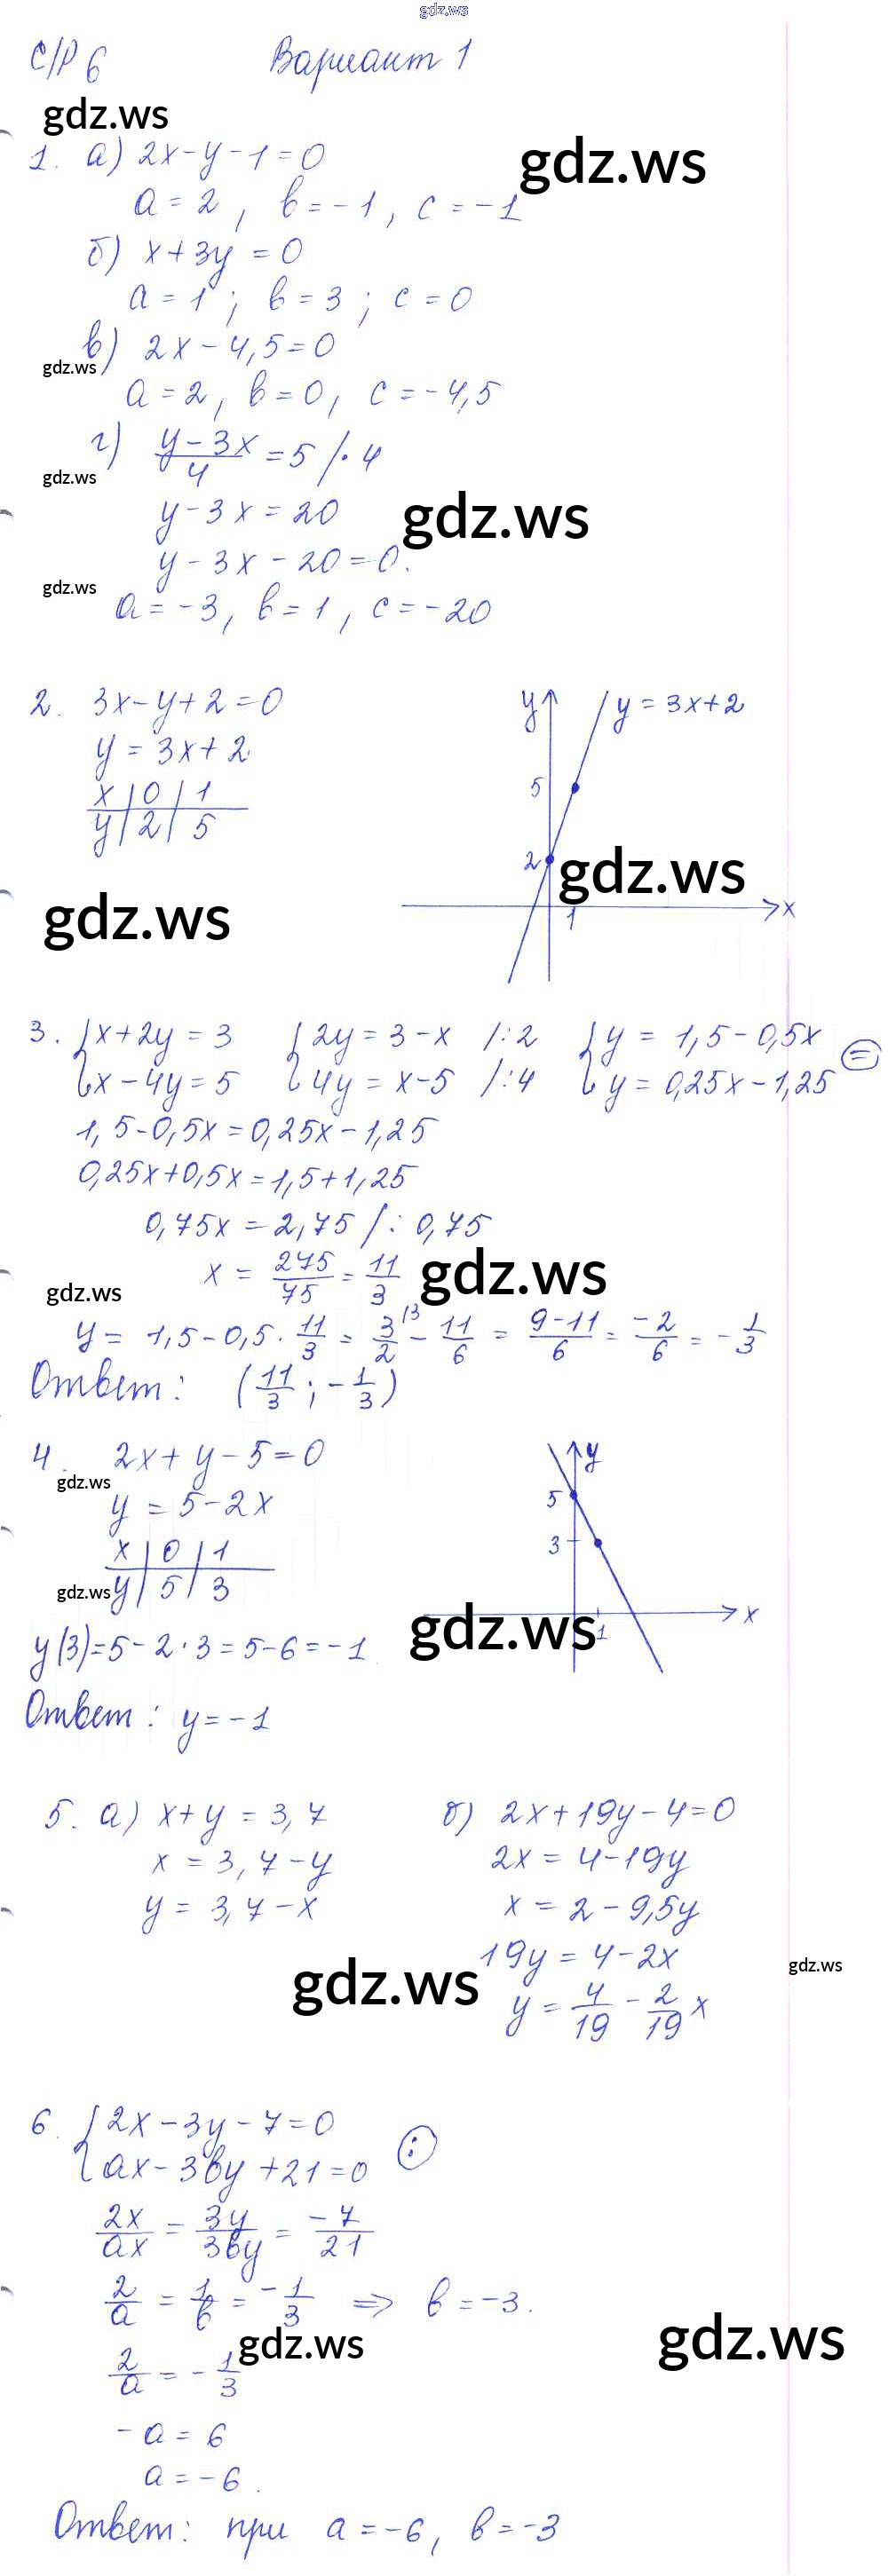 gdz.ws
С/Р 6 Вариант 1
gdz.ws
1. а) 2x-y-1=0
gdz.ws
a=2, b=-1, c=-1
б) x+3y=0
a=1; b=3; c=0
в) 2x-4,5=0
gdz.ws
a=2, b=0, c=-4,5
г) (y-3x)/4 =5 /·4
gdz.ws
y-3x=20
gdz.ws
y-3x-20=0.
gdz.ws
a=-3, b=1, c=-20
2. 3x-y+2=0
y=3x+2
x | 0 | 1
y | 2 | 5
y y=3x+2
5
2 gdz.ws
gdz.ws
1 x
3. {x+2y=3 {2y=3-x /:2 {y=1,5-0,5x (=)
{x-4y=5 {4y=x-5 /:4 {y=0,25x-1,25
1,5-0,5x=0,25x-1,25
0,25x+0,5x=1,5+1,25
0,75x=2,75 /:0,75
x = 275/75 = 11/3 gdz.ws
gdz.ws
y= 1,5-0,5·11/3 = 3/2 /3 - 11/6 = (9-11)/6 = -2/6 = -1/3
Ответ: (11/3; -1/3)
4. 2x+y-5=0
gdz.ws
y=5-2x
x | 0 | 1
gdz.ws
y | 5 | 3
y
5
3
gdz.ws 1 x
y(3)=5-2·3=5-6=-1
Ответ: y=-1
5. а) x+y=3,7
x=3,7-y
y=3,7-x
б) 2x+19y-4=0
2x=4-19y
x=2-9,5y
19y=4-2x
gdz.ws
gdz.ws
y=4/19 - 2/19 x
6. {2x-3y-7=0 (:)
{ax-3by+21=0
2x/ax = 3y/3by = -7/21
2/a = 1/b = -1/3 => b=-3.
gdz.ws
gdz.ws
2/a = -1/3
-a=6
a=-6.
Ответ: при a=-6, b=-3